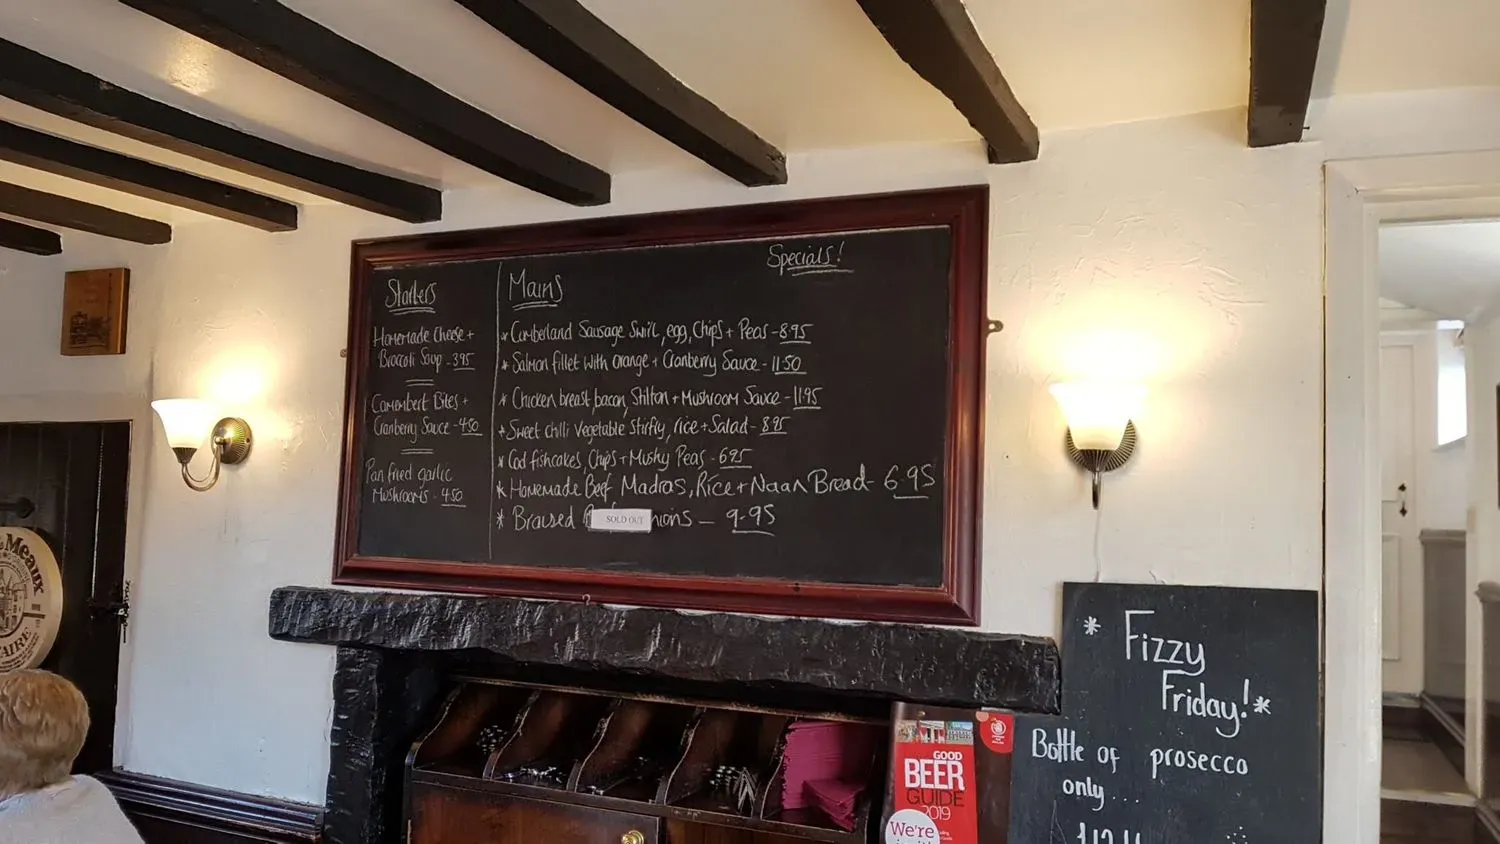 Specials!
Starters
Homemade Cheese +
Broccoli Soup - 3.95
Camembert Bites +
Cranberry Sauce - 4.50
Pan fried garlic
Mushrooms - 4.50
Mains
* Cumberland Sausage Swirl, egg, Chips + Peas - 8.95
* Salmon fillet with orange + Cranberry Sauce - 11.50
* Chicken breast, bacon, Stilton + Mushroom Sauce - 11.95
* Sweet chilli Vegetable Stirfry, rice + Salad - 8.95
* Cod fishcakes, Chips + Mushy Peas - 6.95
* Homemade Beef Madras, Rice + Naan Bread - 6.95
* Braised SOLD OUT nions - 9.95
* Fizzy
Friday! *
Bottle of prosecco
only ...
GOOD
BEER
GUIDE
2019
We're
Meaux